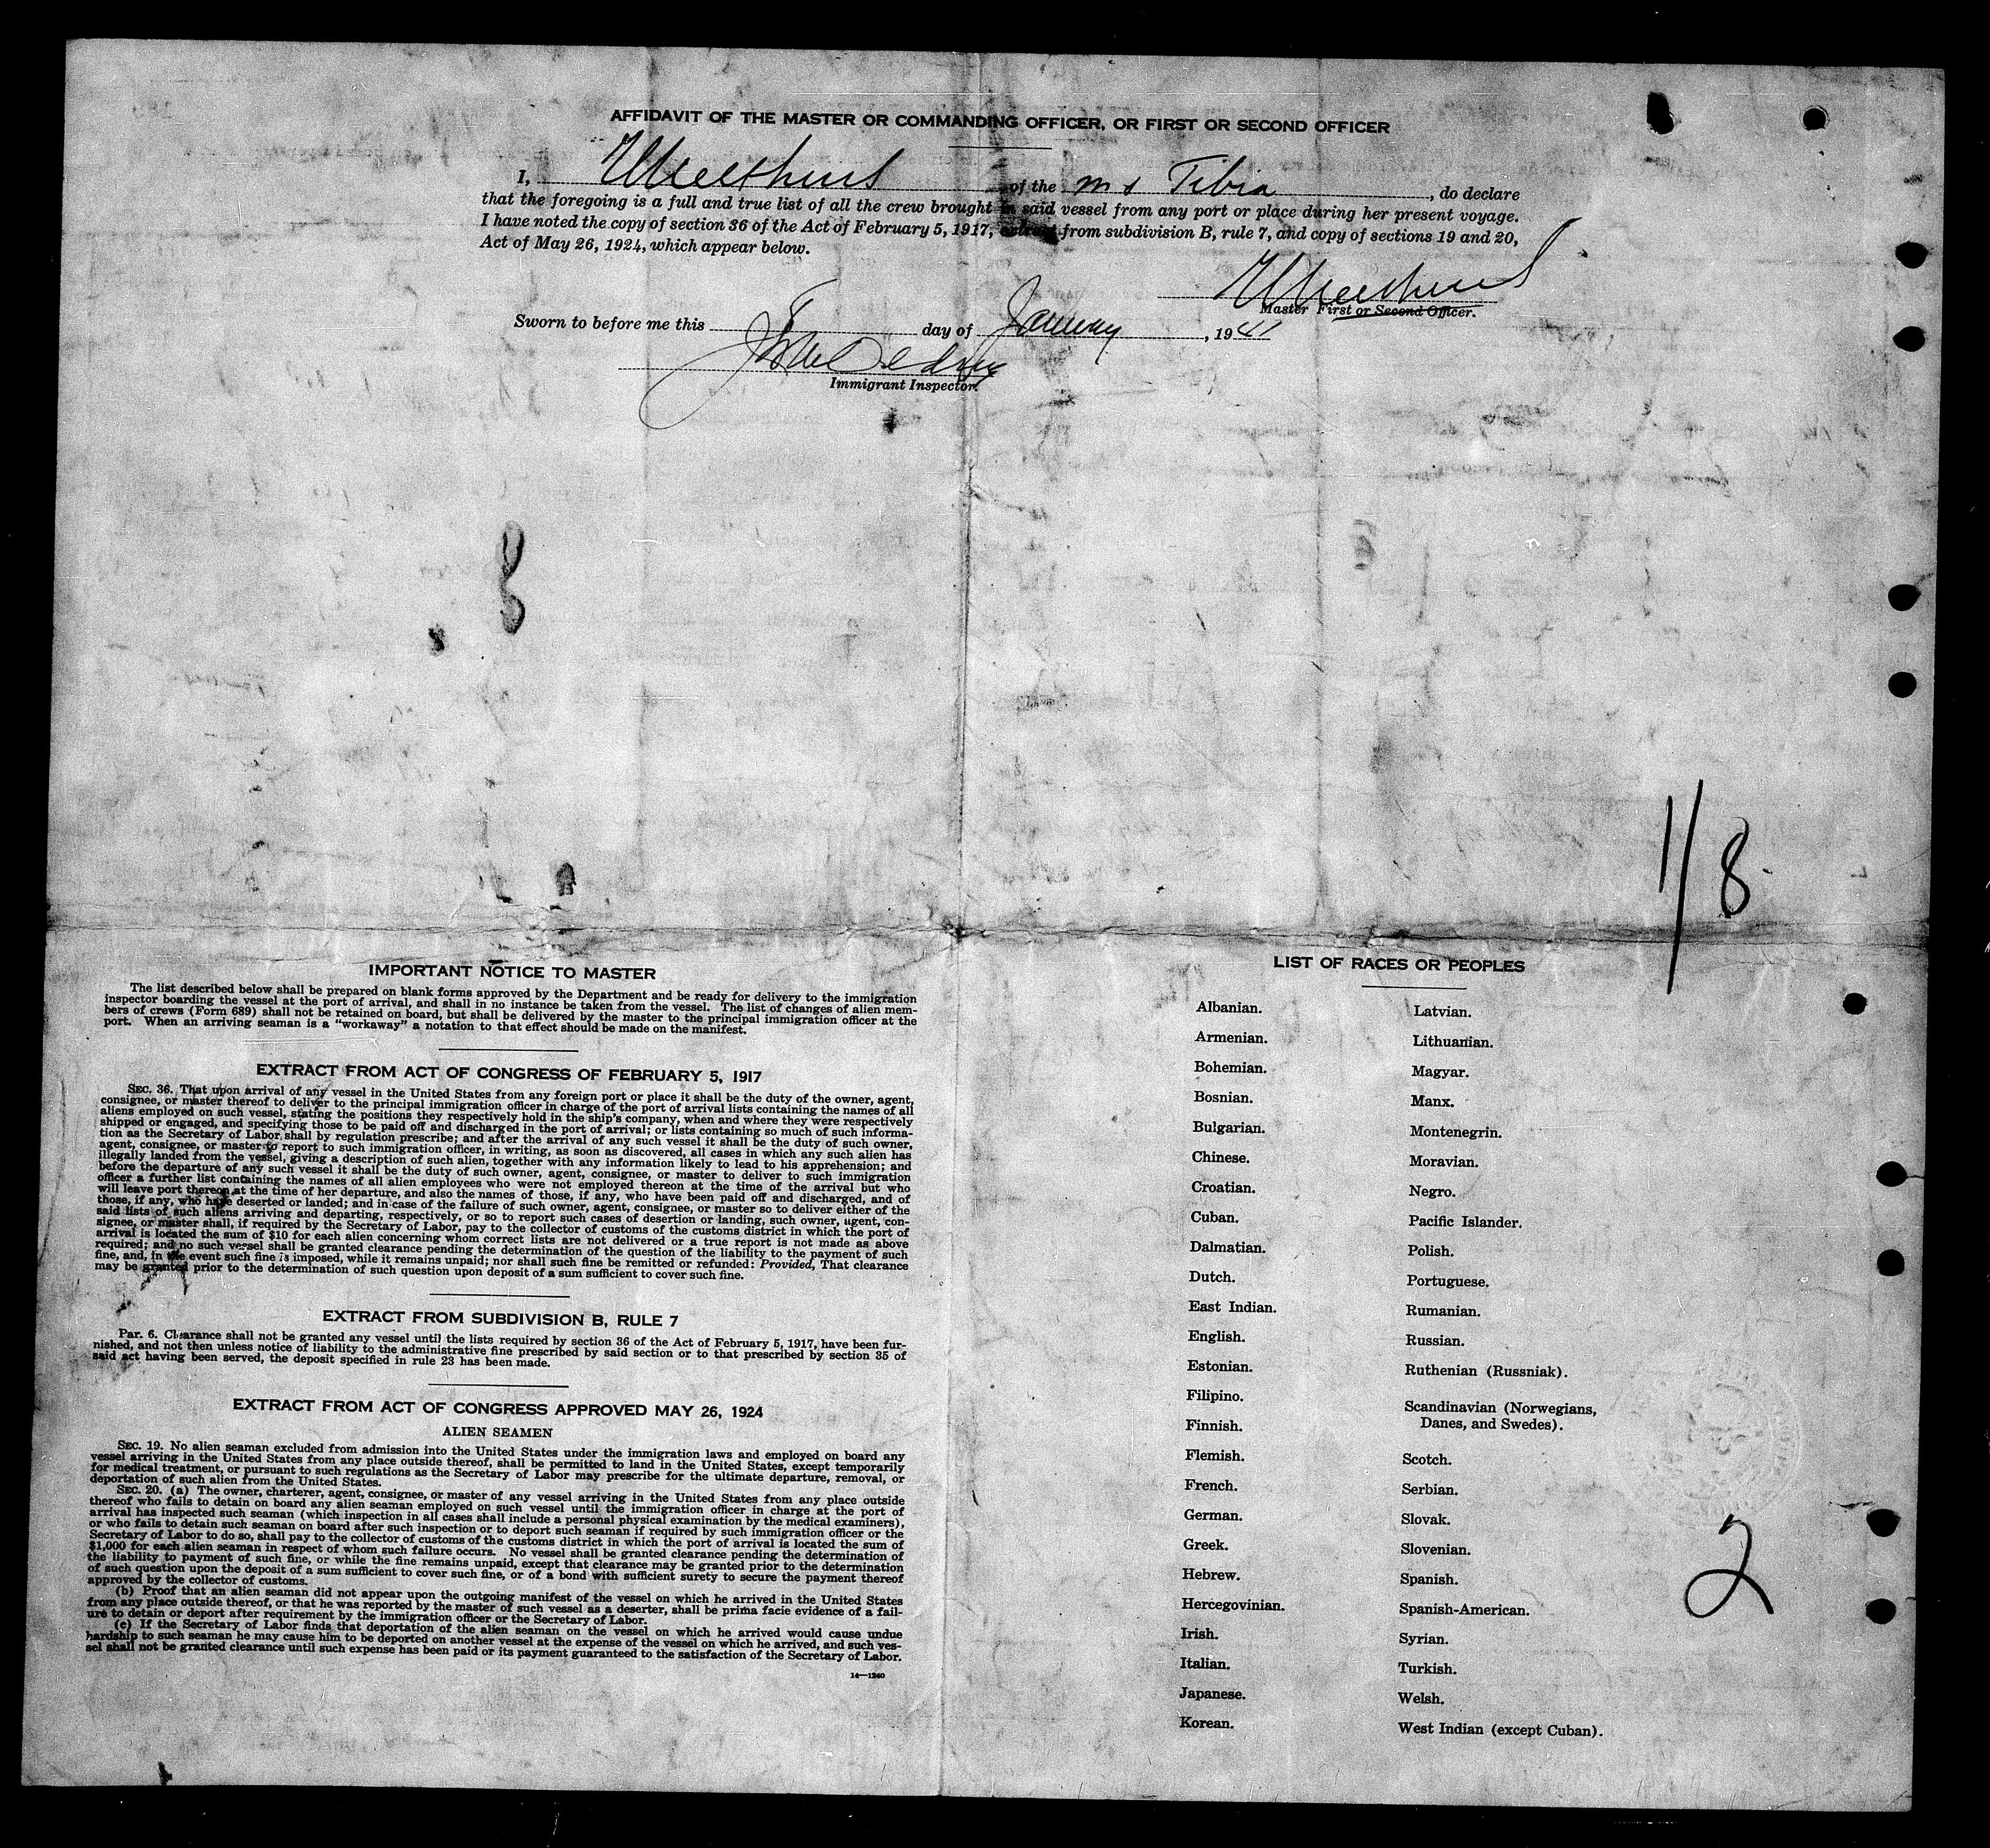 AFFIDAVIT OF THE MASTER OR COMMANDING OFFICER, OR FIRST OR SECOND OFFICER
I, of the m s Tibia, do declare
that the foregoing is a full and true list of all the crew brought in said vessel from any port or place during her present voyage.
I have noted the copy of section 36 of the Act of February 5, 1917, extract from subdivision B, rule 7, and copy of sections 19 and 20,
Act of May 26, 1924, which appear below.
Master First or Second Officer.
Sworn to before me this 8 day of January, 1941
Immigrant Inspector.
1/8
IMPORTANT NOTICE TO MASTER
The list described below shall be prepared on blank forms approved by the Department and be ready for delivery to the immigration
inspector boarding the vessel at the port of arrival, and shall in no instance be taken from the vessel. The list of changes of alien mem-
bers of crews (Form 689) shall not be retained on board, but shall be delivered by the master to the principal immigration officer at the
port. When an arriving seaman is a "workaway" a notation to that effect should be made on the manifest.
EXTRACT FROM ACT OF CONGRESS OF FEBRUARY 5, 1917
SEC. 36. That upon arrival of any vessel in the United States from any foreign port or place it shall be the duty of the owner, agent,
consignee, or master thereof to deliver to the principal immigration officer in charge of the port of arrival lists containing the names of all
aliens employed on such vessel, stating the positions they respectively hold in the ship's company, when and where they were respectively
shipped or engaged, and specifying those to be paid off and discharged in the port of arrival; or lists containing so much of such informa-
tion as the Secretary of Labor shall by regulation prescribe; and after the arrival of any such vessel it shall be the duty of such owner,
agent, consignee, or master to report to such immigration officer, in writing, as soon as discovered, all cases in which any such alien has
illegally landed from the vessel, giving a description of such alien, together with any information likely to lead to his apprehension; and
before the departure of any such vessel it shall be the duty of such owner, agent, consignee, or master to deliver to such immigration
officer a further list containing the names of all alien employees who were not employed thereon at the time of the arrival but who
will leave port thereon at the time of her departure, and also the names of those, if any, who have been paid off and discharged, and of
those, if any, who have deserted or landed; and in case of the failure of such owner, agent, consignee, or master so to deliver either of the
said lists of such aliens arriving and departing, respectively, or so to report such cases of desertion or landing, such owner, agent, con-
signee, or master shall, if required by the Secretary of Labor, pay to the collector of customs of the customs district in which the port of
arrival is located the sum of $10 for each alien concerning whom correct lists are not delivered or a true report is not made as above
required; and no such vessel shall be granted clearance pending the determination of the question of the liability to the payment of such
fine, and, in the event such fine is imposed, while it remains unpaid; nor shall such fine be remitted or refunded: Provided, That clearance
may be granted prior to the determination of such question upon deposit of a sum sufficient to cover such fine.
EXTRACT FROM SUBDIVISION B, RULE 7
Par. 6. Clearance shall not be granted any vessel until the lists required by section 36 of the Act of February 5, 1917, have been fur-
nished, and not then unless notice of liability to the administrative fine prescribed by said section or to that prescribed by section 35 of
said act having been served, the deposit specified in rule 23 has been made.
EXTRACT FROM ACT OF CONGRESS APPROVED MAY 26, 1924
ALIEN SEAMEN
SEC. 19. No alien seaman excluded from admission into the United States under the immigration laws and employed on board any
vessel arriving in the United States from any place outside thereof, shall be permitted to land in the United States, except temporarily
for medical treatment, or pursuant to such regulations as the Secretary of Labor may prescribe for the ultimate departure, removal, or
deportation of such alien from the United States.
SEC. 20. (a) The owner, charterer, agent, consignee, or master of any vessel arriving in the United States from any place outside
thereof who fails to detain on board any alien seaman employed on such vessel until the immigration officer in charge at the port of
arrival has inspected such seaman (which inspection in all cases shall include a personal physical examination by the medical examiners),
or who fails to detain such seaman on board after such inspection or to deport such seaman if required by such immigration officer or the
Secretary of Labor to do so, shall pay to the collector of customs of the customs district in which the port of arrival is located the sum of
$1,000 for each alien seaman in respect of whom such failure occurs. No vessel shall be granted clearance pending the determination of
the liability to payment of such fine, or while the fine remains unpaid, except that clearance may be granted prior to the determination
of such question upon the deposit of a sum sufficient to cover such fine, or of a bond with sufficient surety to secure the payment thereof
approved by the collector of customs.
(b) Proof that an alien seaman did not appear upon the outgoing manifest of the vessel on which he arrived in the United States
from any place outside thereof, or that he was reported by the master of such vessel as a deserter, shall be prima facie evidence of a fail-
ure to detain or deport after requirement by the immigration officer or the Secretary of Labor.
(c) If the Secretary of Labor finds that deportation of the alien seaman on the vessel on which he arrived would cause undue
hardship to such seaman he may cause him to be deported on another vessel at the expense of the vessel on which he arrived, and such ves-
sel shall not be granted clearance until such expense has been paid or its payment guaranteed to the satisfaction of the Secretary of Labor.
14—1240
LIST OF RACES OR PEOPLES
Albanian.
Armenian.
Bohemian.
Bosnian.
Bulgarian.
Chinese.
Croatian.
Cuban.
Dalmatian.
Dutch.
East Indian.
English.
Estonian.
Filipino.
Finnish.
Flemish.
French.
German.
Greek.
Hebrew.
Hercegovinian.
Irish.
Italian.
Japanese.
Korean.
Latvian.
Lithuanian.
Magyar.
Manx.
Montenegrin.
Moravian.
Negro.
Pacific Islander.
Polish.
Portuguese.
Rumanian.
Russian.
Ruthenian (Russniak).
Scandinavian (Norwegians,
Danes, and Swedes).
Scotch.
Serbian.
Slovak.
Slovenian.
Spanish.
Spanish-American.
Syrian.
Turkish.
Welsh.
West Indian (except Cuban).
2